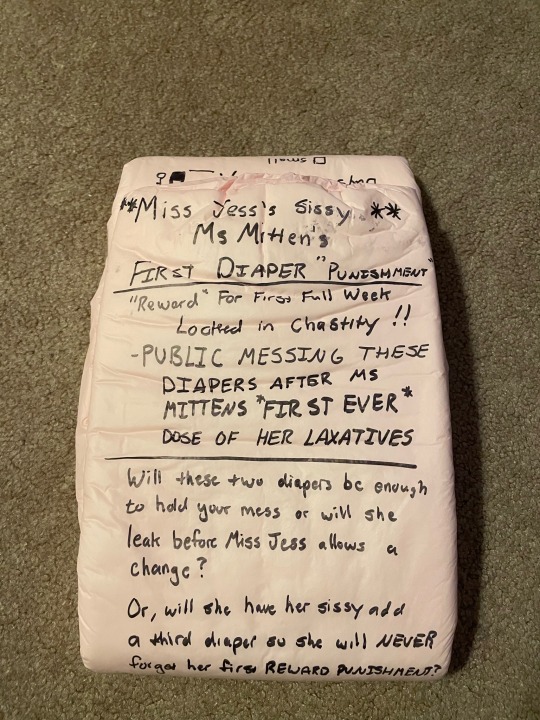 small
**Miss Jess's Sissy **
Ms Mitten's
FIRST DIAPER "PUNISHMENT"
"Reward" For First Full Week
Locked in Chastity !!
-PUBLIC MESSING THESE
DIAPERS AFTER MS
MITTENS *FIRST EVER*
DOSE OF HER LAXATIVES
Will these two diapers be enough
to hold your mess or will she
leak before Miss Jess allows a
change?
Or, will she have her sissy add
a third diaper so she will NEVER
forget her first REWARD PUNISHMENT?